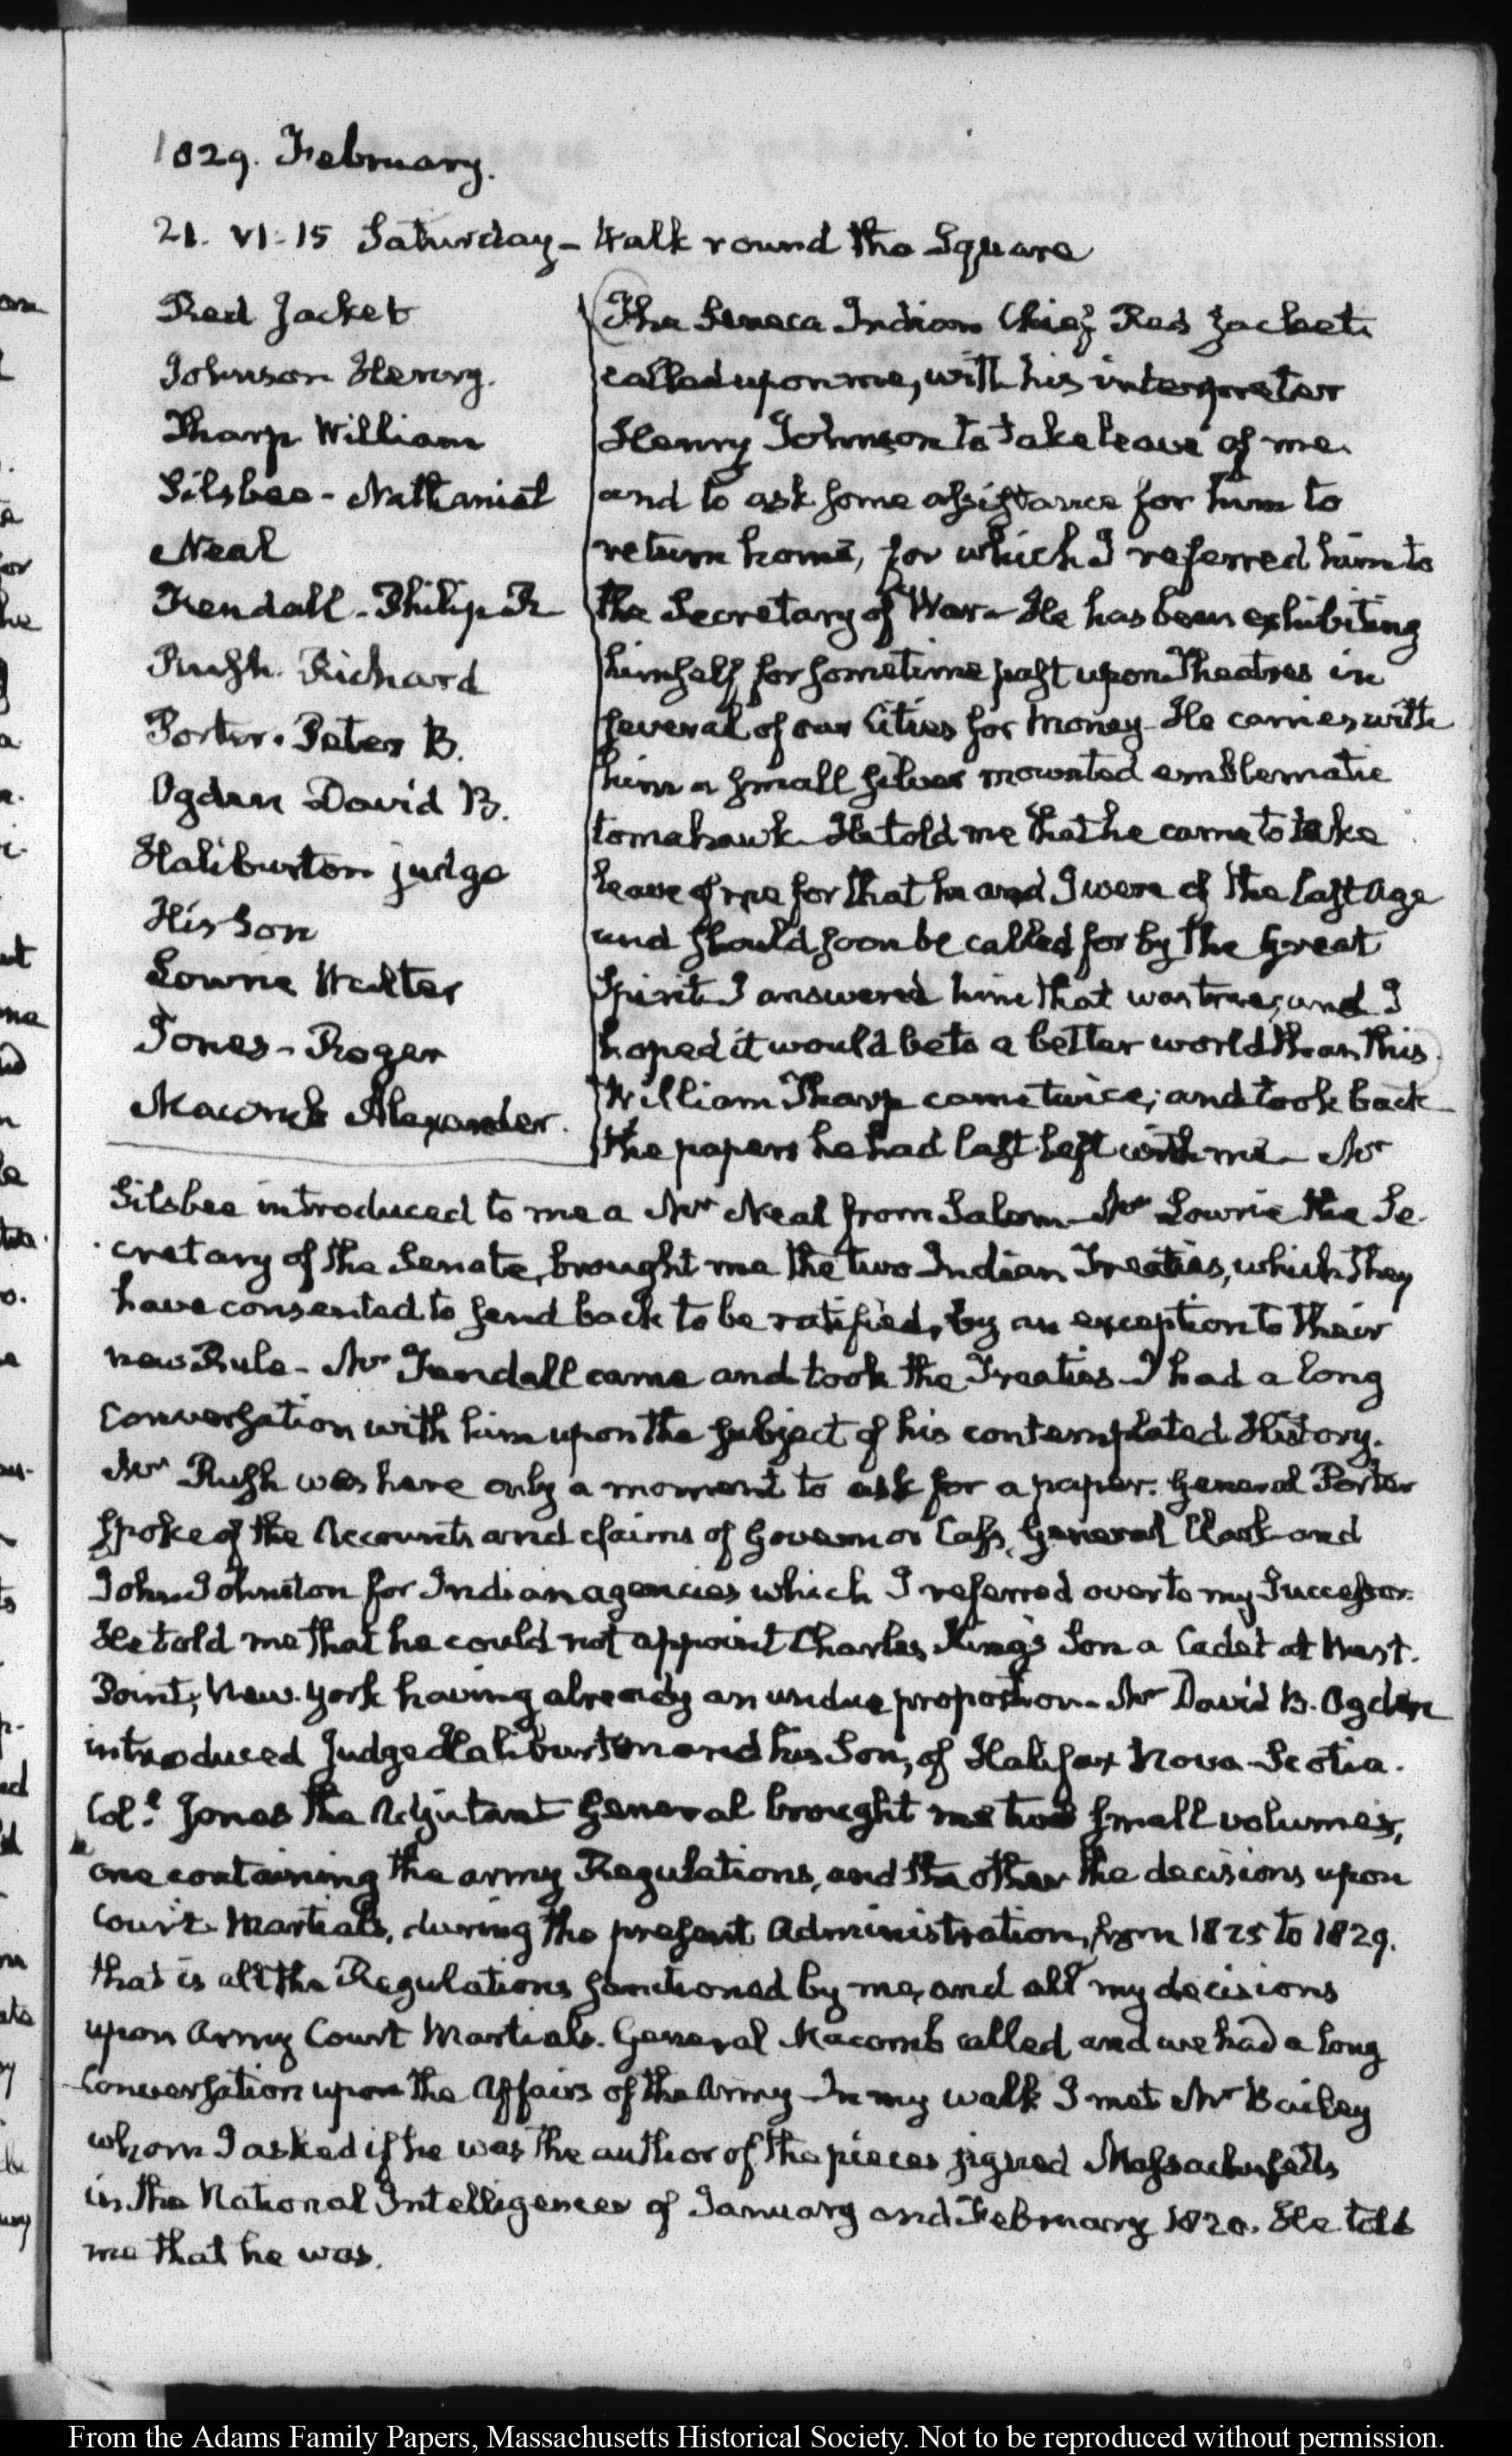 1829. February.
21. VI:15 Saturday – Walk round the Square
Red Jacket
Johnson Henry.
Tharp William
Silsbee - Nathaniel
Neal
Fendall - Philip R
Rush. Richard
Porter. Peter B.
Ogden David B.
Haliburton judge
His Son
Lowrie Walter
Jones - Roger
Macomb Alexander.
The Seneca Indian Chief Red Jacket
called upon me, with his interpreter
Henry Johnson to take leave of me
and to ask some assistance for him to
return home, for which I referred him to
the Secretary of War – He has been exhibiting
himself for sometime past upon Theatres in
several of our Cities for money – He carries with
him a small silver mounted emblematic
tomahawk – He told me that he came to take
leave of me for that he and I were of the last age
and should soon be called for by the Great
Spirit – I answered him that was true; and I
hoped it would be to a better world than this.
William Tharp came twice; and took back
the papers he had last left with me – Mr
Silsbee introduced to me a Mr Neal from Salem – Mr Lowrie the Se-
cretary of the Senate, brought me the two Indian Treaties, which they
have consented to send back to be ratified, by an exception to their
new Rule – Mr Fendall came and took the Treaties – I had a long
Conversation with him upon the subject of his contemplated History.
Mr Rush was here only a moment to ask for a paper. General Porter
spoke of the Accounts and claims of Governor Cass, General Clark and
John Johnston for Indian agencies which I referred over to my Successor.
He told me that he could not appoint Charles King's Son a Cadet at West-
Point; New-York having already an undue proportion – Mr David B. Ogden
introduced Judge Haliburton and his Son, of Halifax Nova-Scotia.
Col.l Jones the Adjutant General brought me two small volumes,
one containing the army Regulations, and the other the decisions upon
Court-Martials, during the present Administration, from 1825 to 1829.
that is all the Regulations sanctioned by me, and all my decisions
upon Army Court Martials. General Macomb called and we had a long
Conversation upon the affairs of the Army – In my walk I met Mr Bailey
whom I asked if he was the author of the pieces signed Massachusetts
in the National Intelligencer of January and February 1820. He told
me that he was.
From the Adams Family Papers, Massachusetts Historical Society. Not to be reproduced without permission.